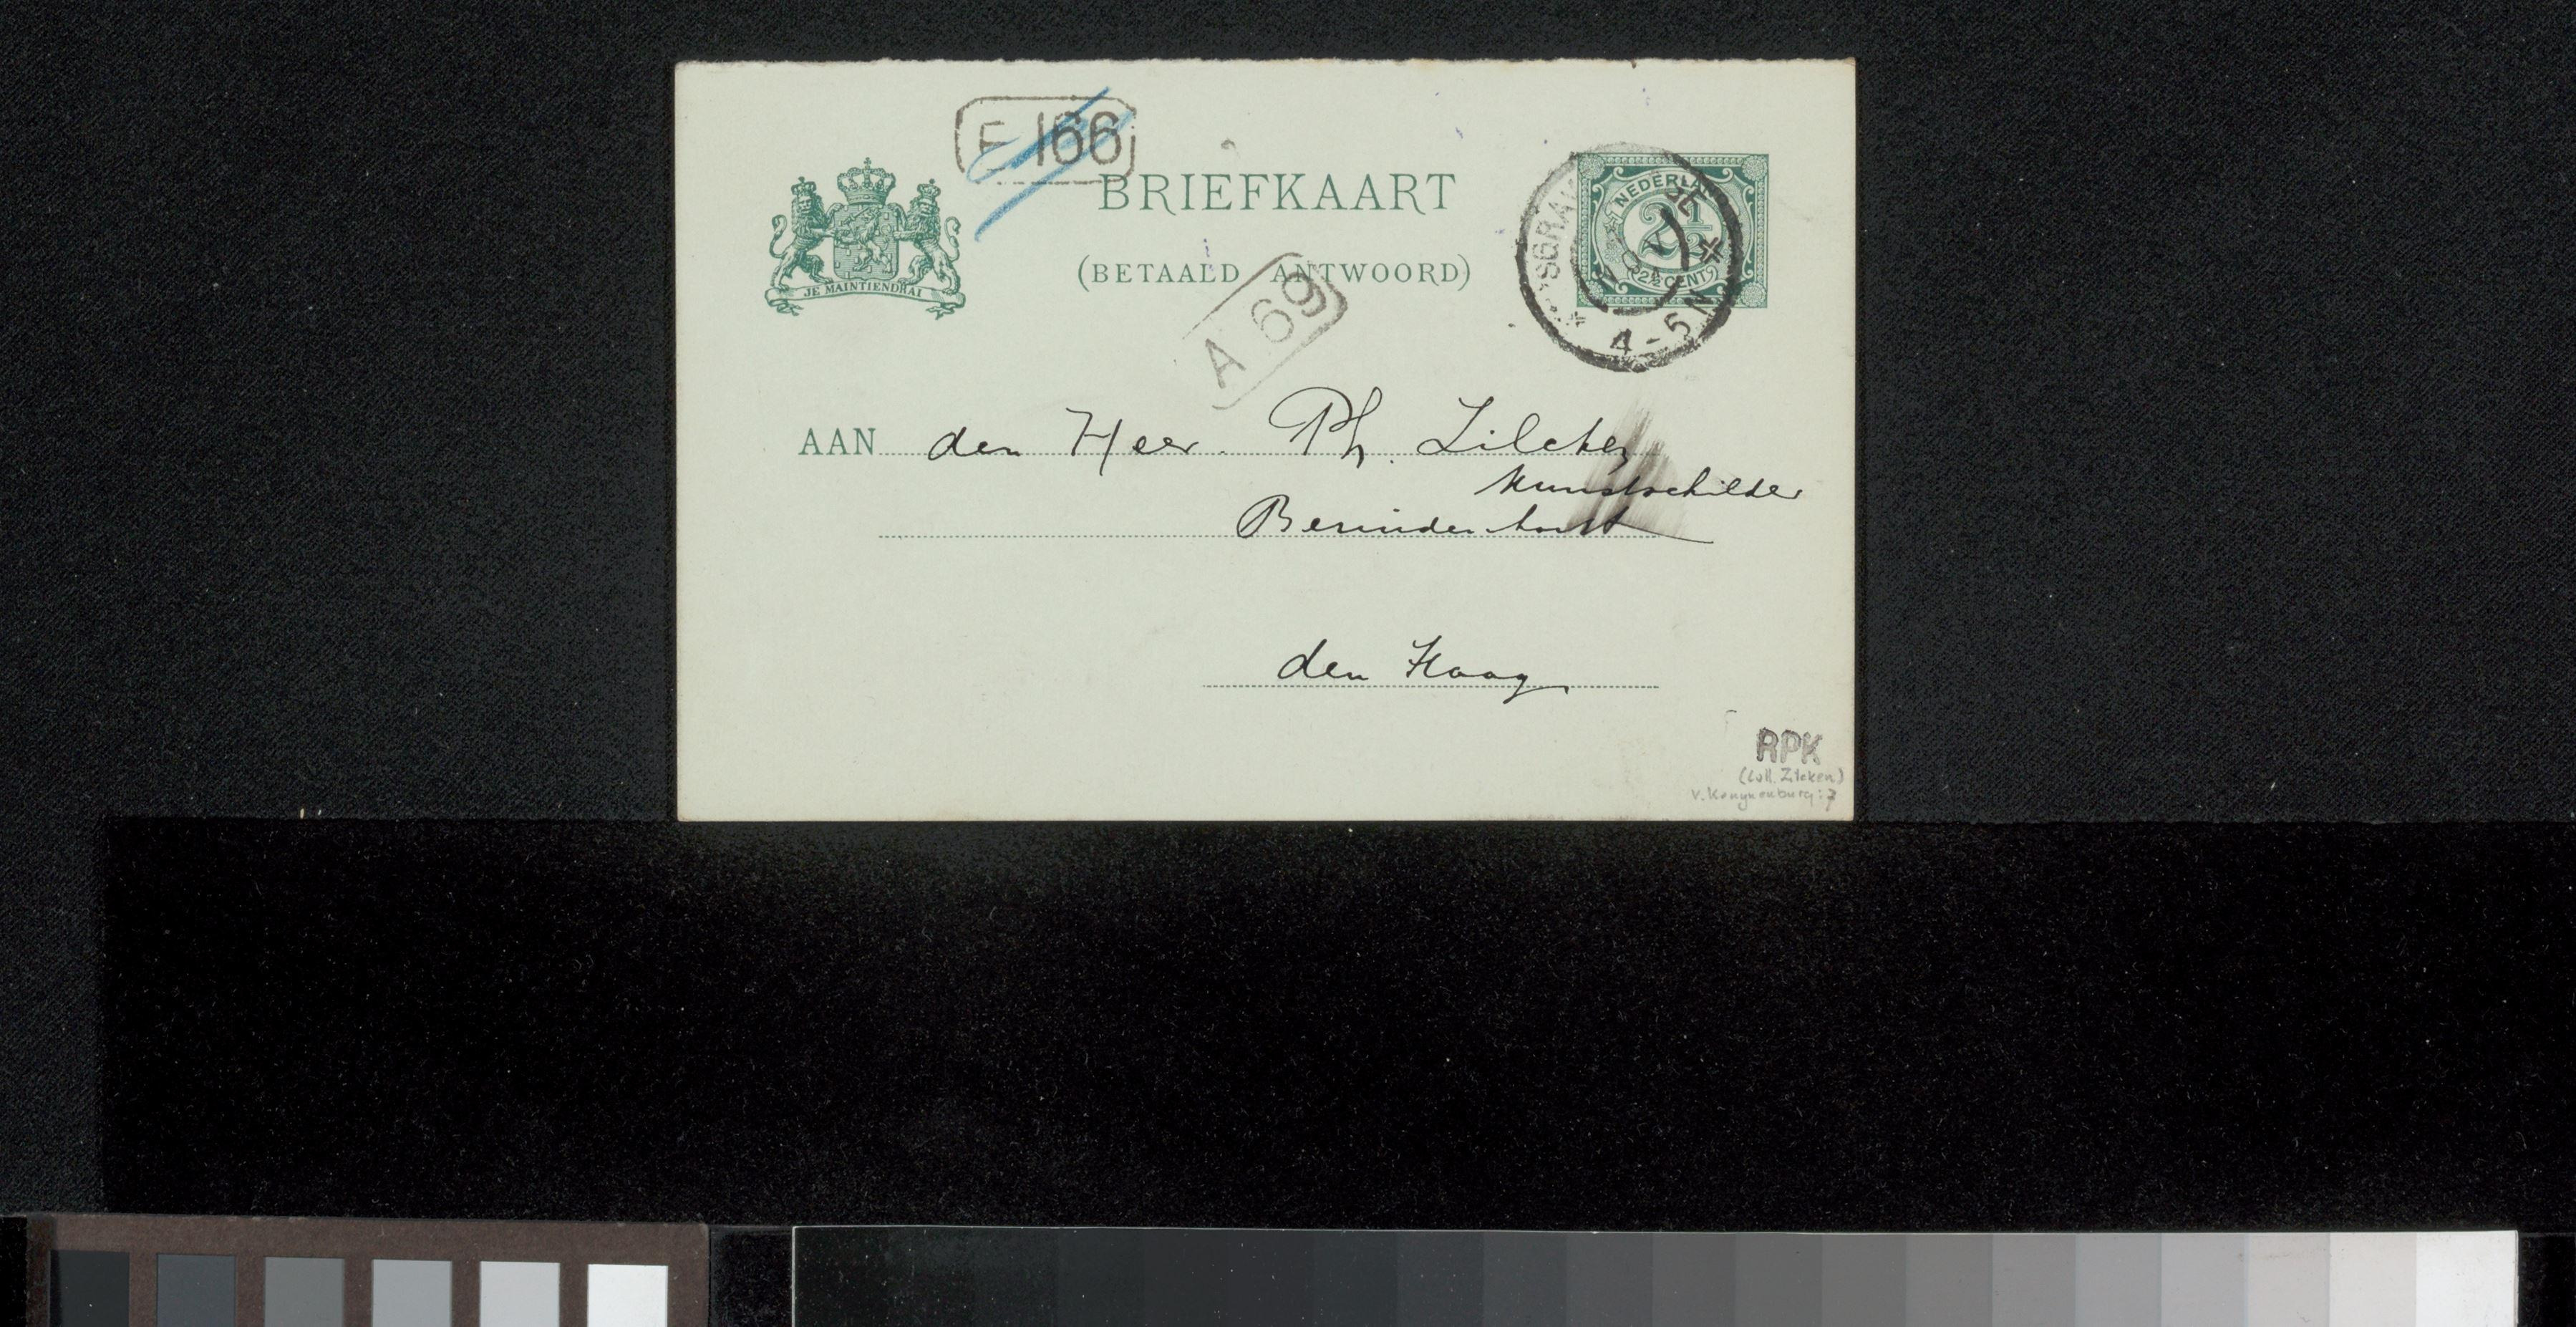 F 166
BRIEFKAART
(BETAALD ANTWOORD)
JE MAINTIENDRAI
NEDERLAND
2½
(2½ CENT)
'SGRAV
4-5N
A 69
AAN den Heer Ph. Zilcken
Kunstschilder
den Haag
RPK
(Coll. Zilcken)
v. Konynenburg: 7